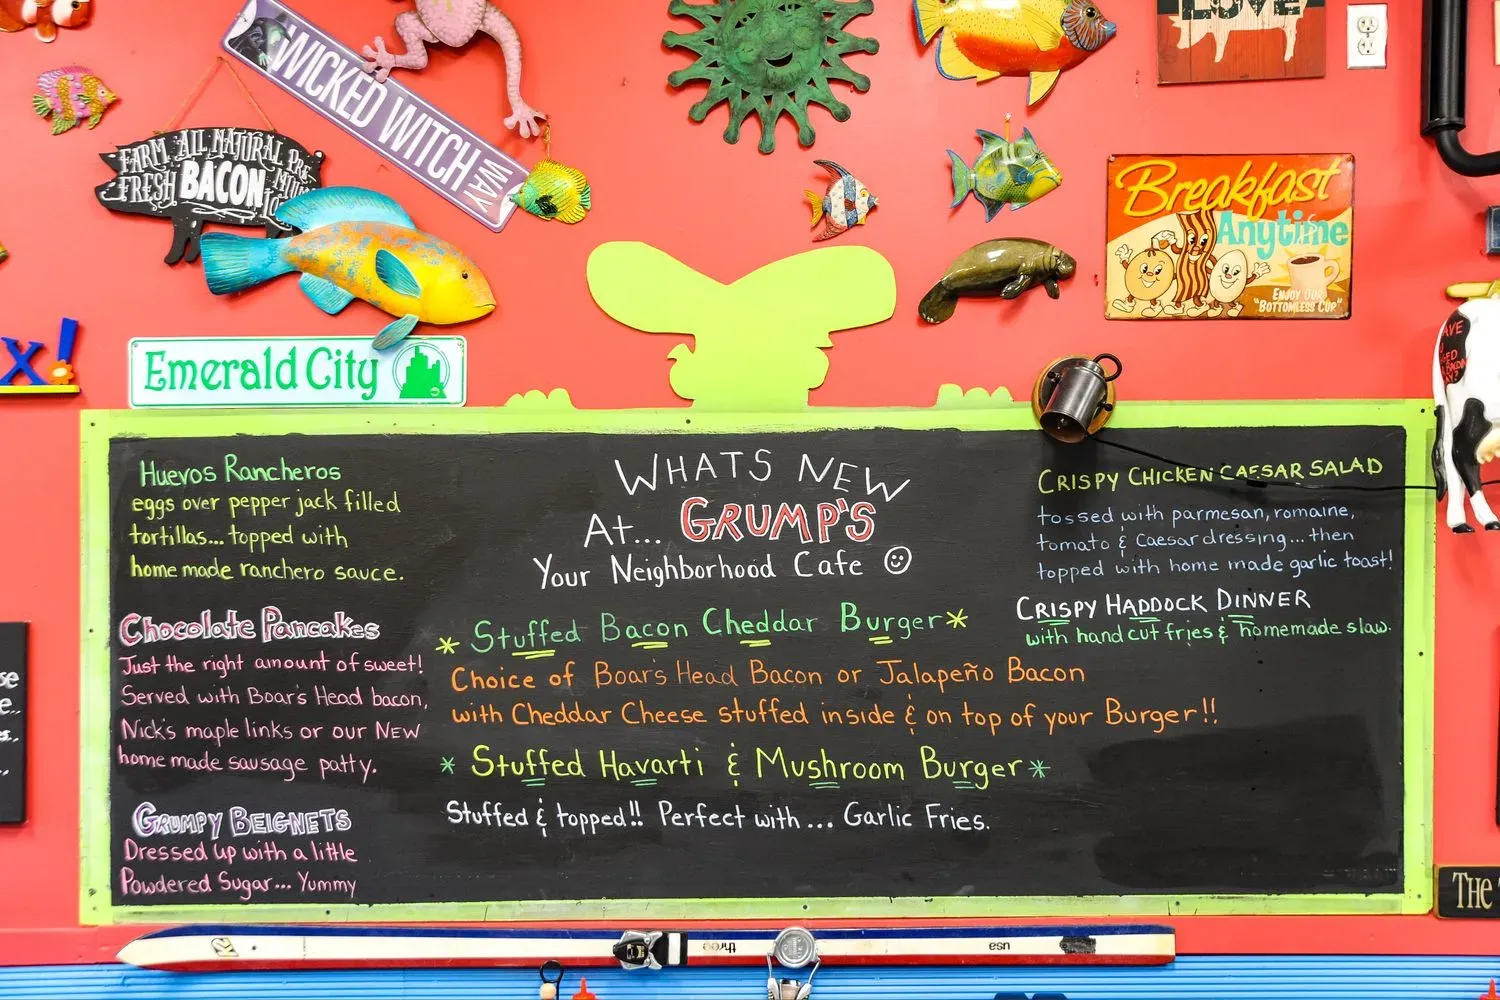 LOVE
WICKED WITCH WAY
FARM ALL NATURAL
FRESH BACON
Breakfast
Anytime
ENJOY OUR
"BOTTOMLESS CUP"
Emerald City
x!
HUEVOS RANCHEROS
eggs over pepper jack filled
tortillas... topped with
home made ranchero sauce.
CHOCOLATE PANCAKES
Just the right amount of sweet!
Served with Boar's Head bacon,
Nick's maple links or our NEW
home made sausage patty.
GRUMPY BEIGNETS
Dressed up with a little
Powdered Sugar... Yummy
WHATS NEW
At... GRUMP'S
Your Neighborhood Cafe
* Stuffed Bacon Cheddar Burger *
Choice of Boar's Head Bacon or Jalapeño Bacon
with Cheddar Cheese stuffed inside & on top of your Burger!!
* Stuffed Havarti & Mushroom Burger *
Stuffed & topped!! Perfect with... Garlic Fries.
CRISPY CHICKEN CAESAR SALAD
tossed with parmesan, romaine,
tomato & Caesar dressing... then
topped with home made garlic toast!
CRISPY HADDOCK DINNER
with hand cut fries & homemade slaw.
THE
K2
three
usa